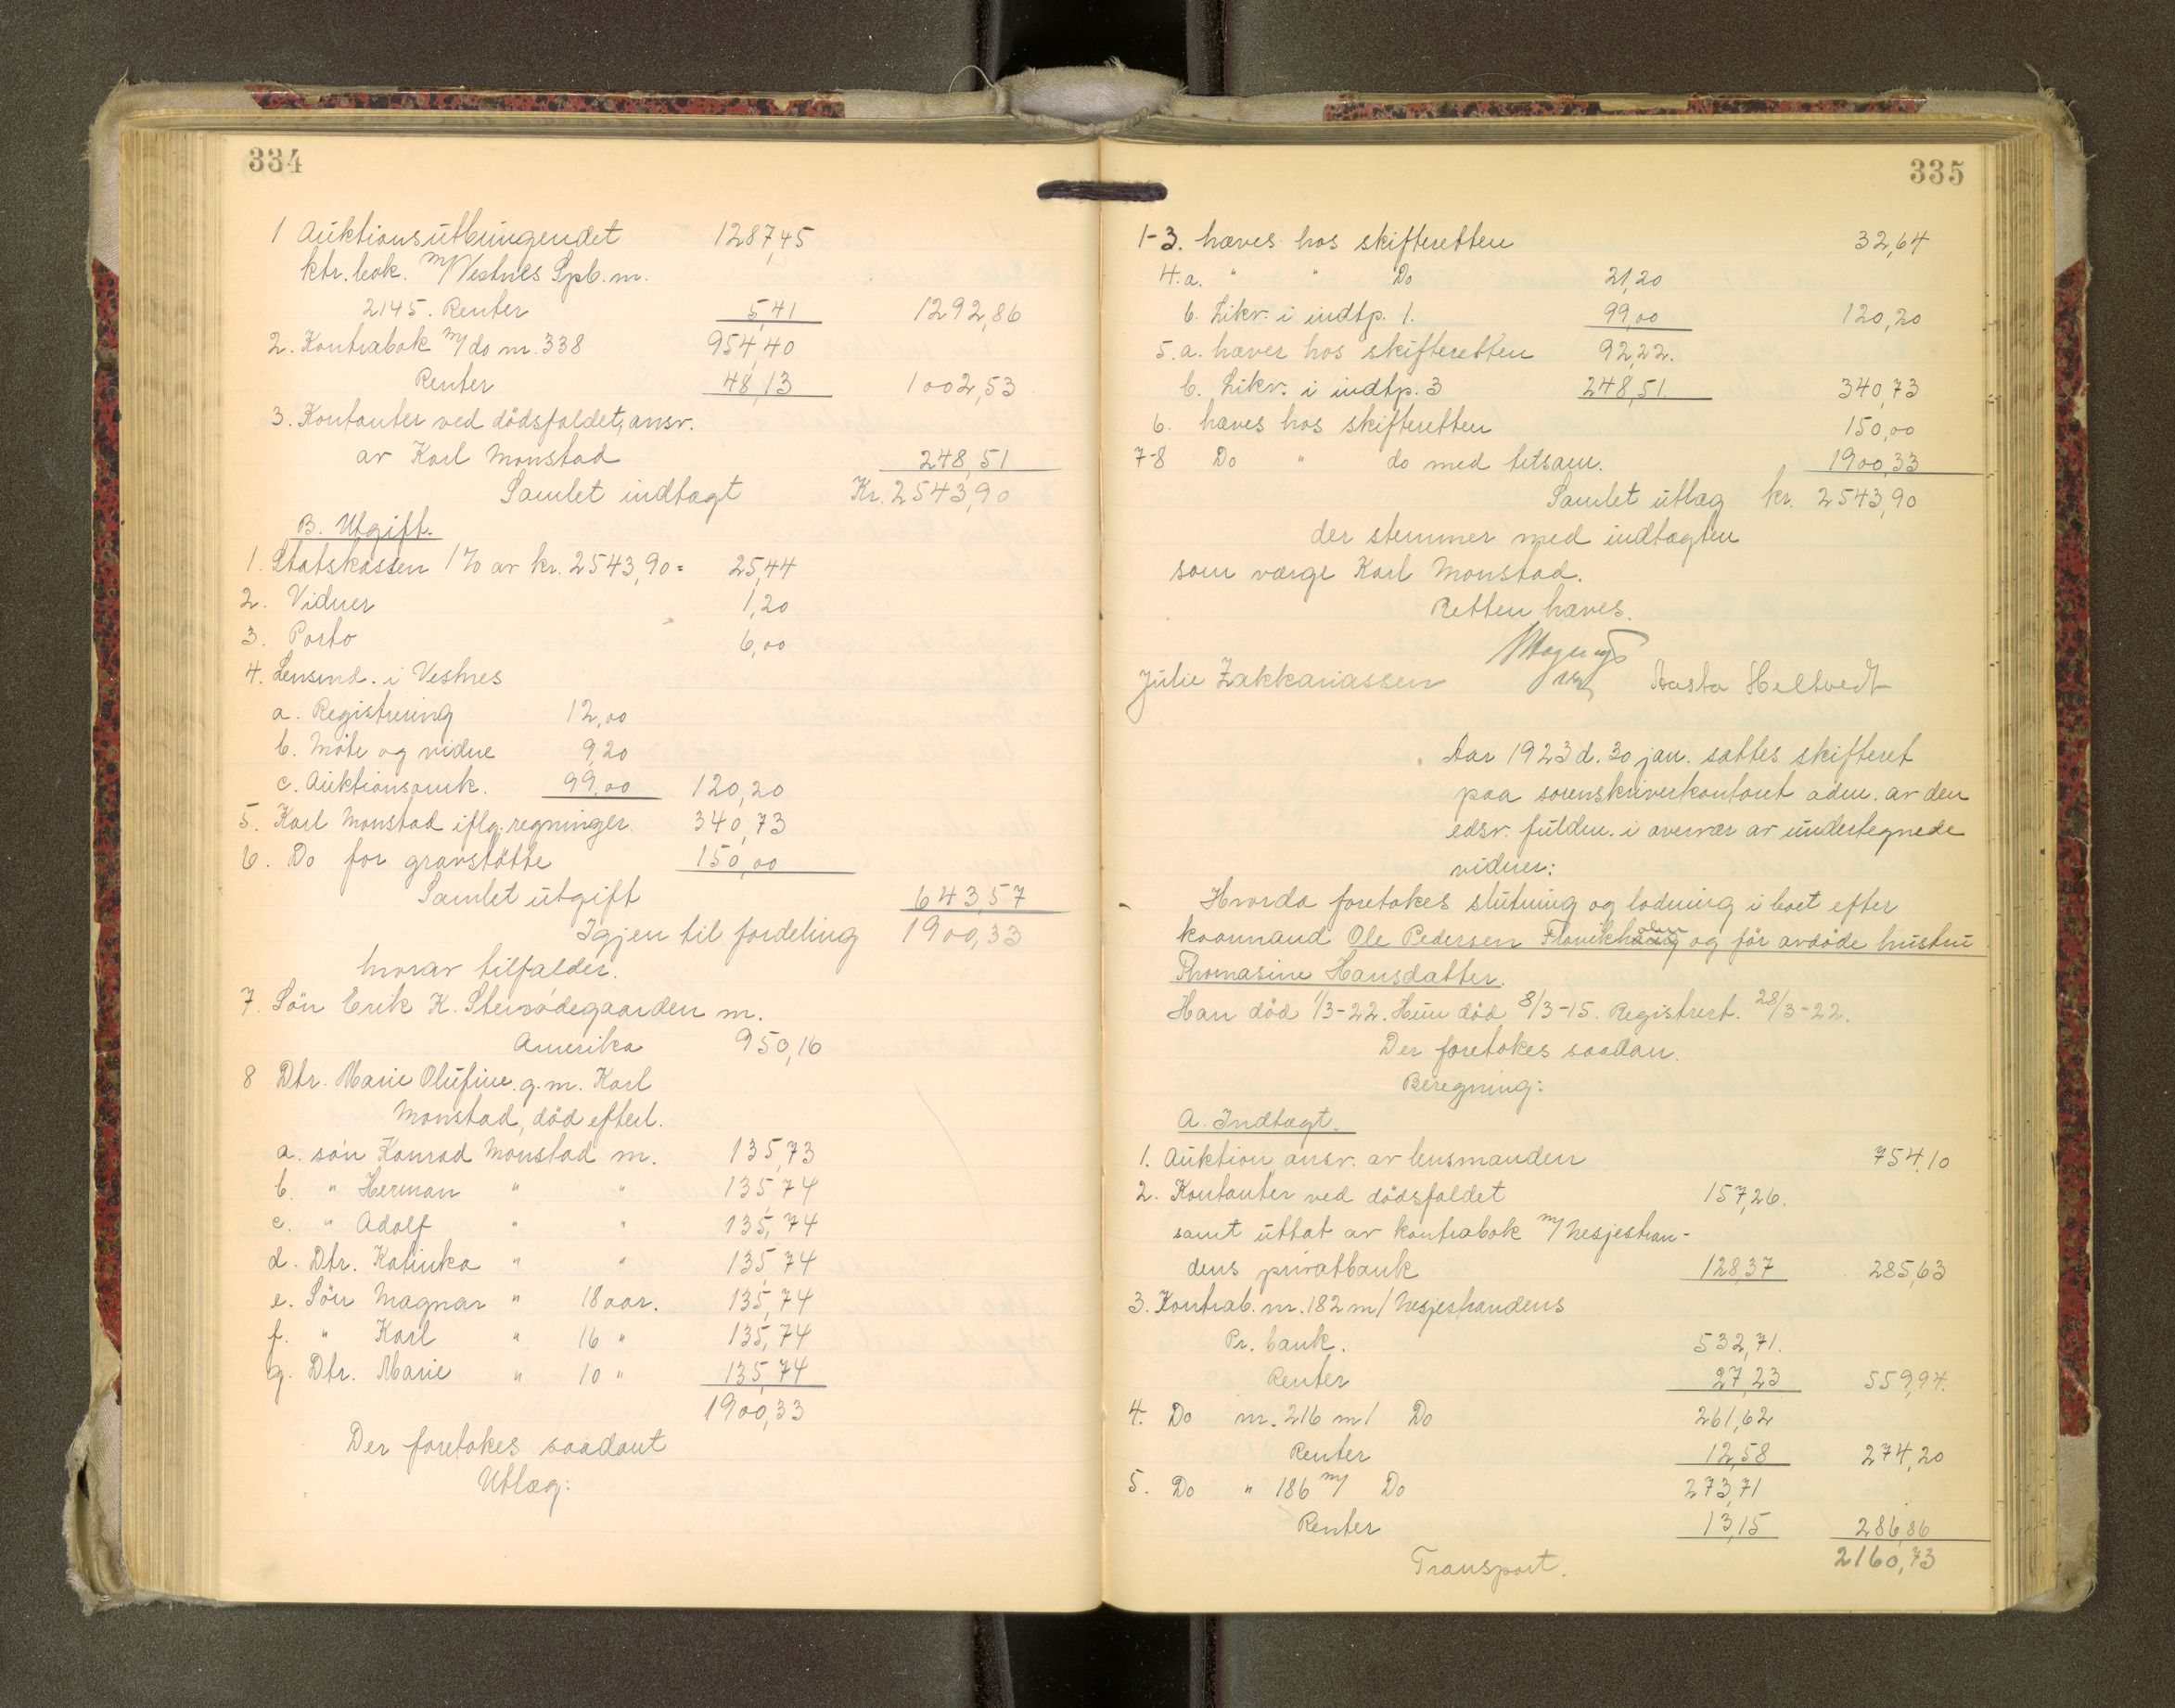 334
1 Auktionsutbringendet 1287,45
ktr. bok. m/ Vestnes Spb. nr.
2145. Renter 5,41 1292,86
2. Kontrabok m/ do nr. 338 954,40
Renter 48,13 1002,53
3. Kontanter ved dödsfaldet, ansv.
av Karl Monstad 248,51
Samlet indtægt Kr. 2543,90
B. Utgift.
1. Statskassen 1% av kr. 2543,90 = 25,44
2. Vidner 1,20
3. Porto 6,00
4. Lensmd. i Vestnes
a. Registrering 12,00
b. Möte og vidne 9,20
c. Auktionsomk. 99,00 120,20
5. Karl Monstad iflg. regninger 340,73
6. Do for gravstötte 150,00
Samlet utgift 643,57
Igjen til fordeling 1900,33
hvorav tilfalder.
7. Sön Erik K. m.
Amerika 950,16
8 Dtr. Marie Olufine g.m. Karl
Monstad, död efterl.
a. sön Konrad Monstad m. 135,73
b. " Herman " " 135,74
c. " Adolf " " 135,74
d. Dtr. Katinka " " 135,74
e. Sön Magnar " 18 aar. 135,74
f. " Karl " 16 " 135,74
g. Dtr. Marie " 10 " 135,74
1900,33
Der foretokes saadant
Utlæg:
335
1-3. hæves hos skifteretten 32,64
4.a. " " Do 21,20
b. Likv. i indtp. 1. 99,00 120,20
5. a. hæver hos skifteretten 92,22.
b. Likv. i indtp. 3 248,51 340,73
6. hæves hos skifteretten 150,00
7-8 Do " do med tilsam. 1900,33
Samlet utlæg kr. 2543,90
der stemmer med indtægten
som værge Karl Monstad.
Retten hæves.
Julie Zakkariassen Aasta Heltvedt
Aar 1923 d. 30 jan. sattes skifteret
paa sorenskriverkontoret adm. av den
edsv. fuldm. i overvær av undertegnede
vidner:
Hvorda foretokes slutning og lodning i boet efter
kaarmand Ole Pedersen og för avdöde hustru
Thomasine Hansdatter.
Han död 1/3-22. Hun död 8/3-15. Registrert. 28/3-22.
Der foretokes saadan.
Beregning:
A. Indtægt.
1. Auktion, ansv. av lensmanden 754,10
2. Kontanter ved dödsfaldet 157,26.
samt uttat av kontrabok m/ Nesjestran-
dens privatbank 128,37 285,63
3. Kontrab. nr. 182 m/ Nesjestrandens
Pr. bank. 532,71.
Renter 27,23 559,94.
4. Do nr. 216 m/ Do 261,62
Renter 12,58 274,20
5. Do " 186 m/ Do 273,71
Renter 13,15 286,86
Transport. 2160,73